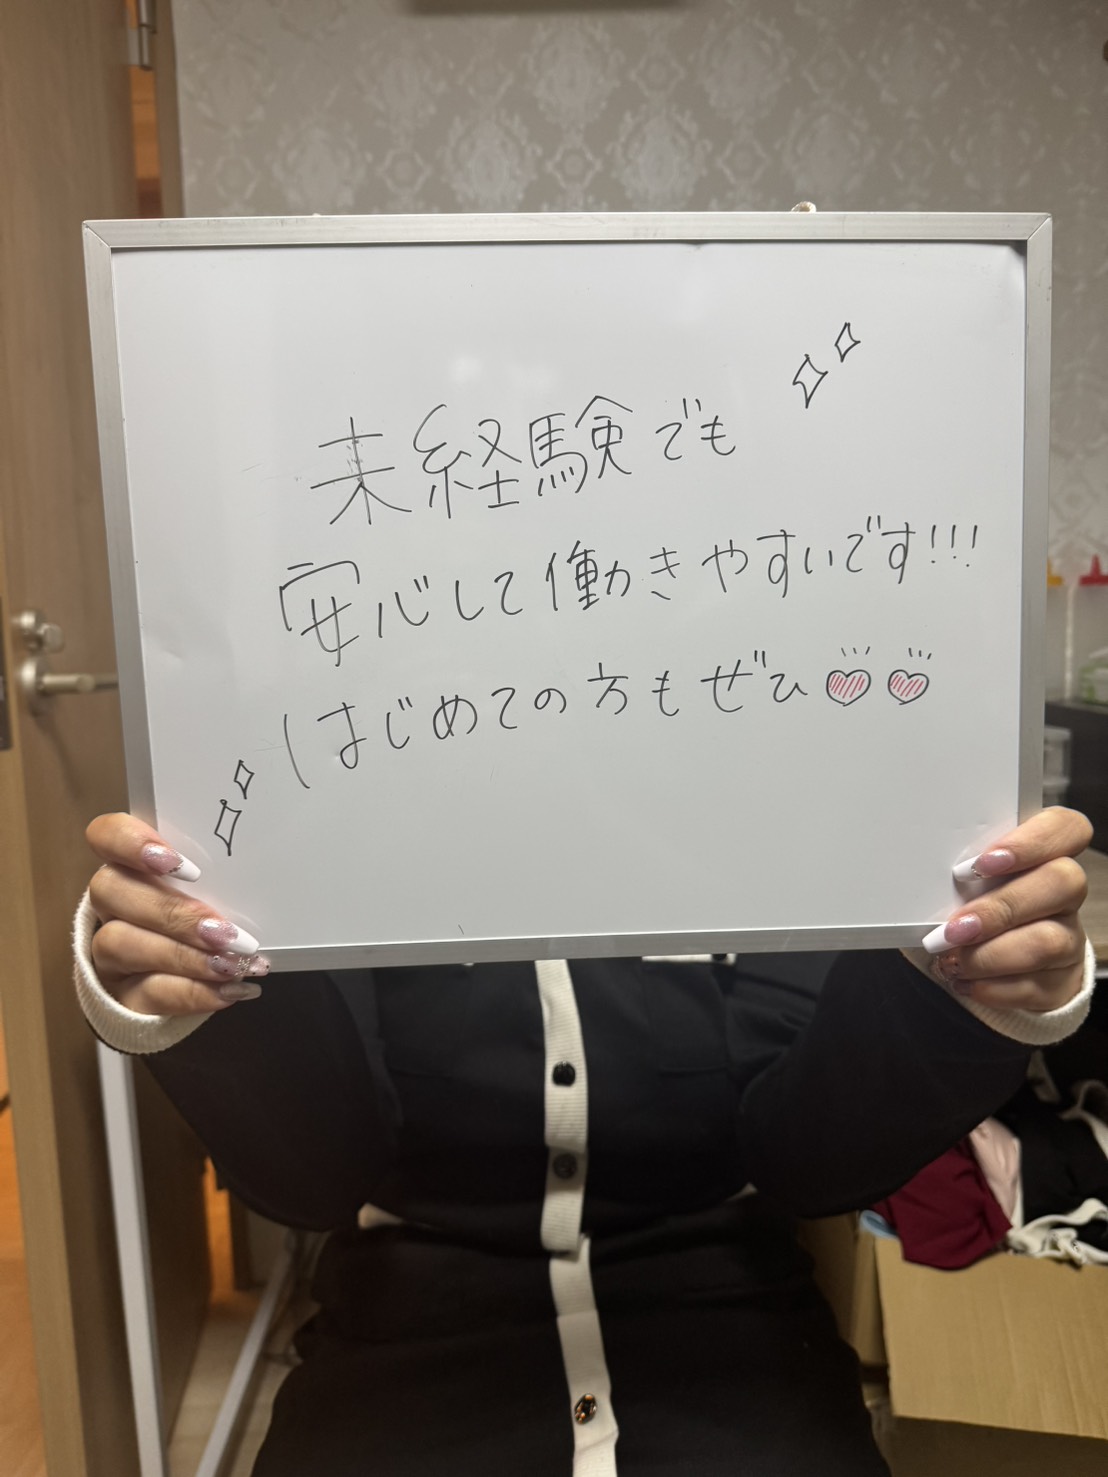 未経験でも
安心して働きやすいです!!!
はじめての方もぜひ